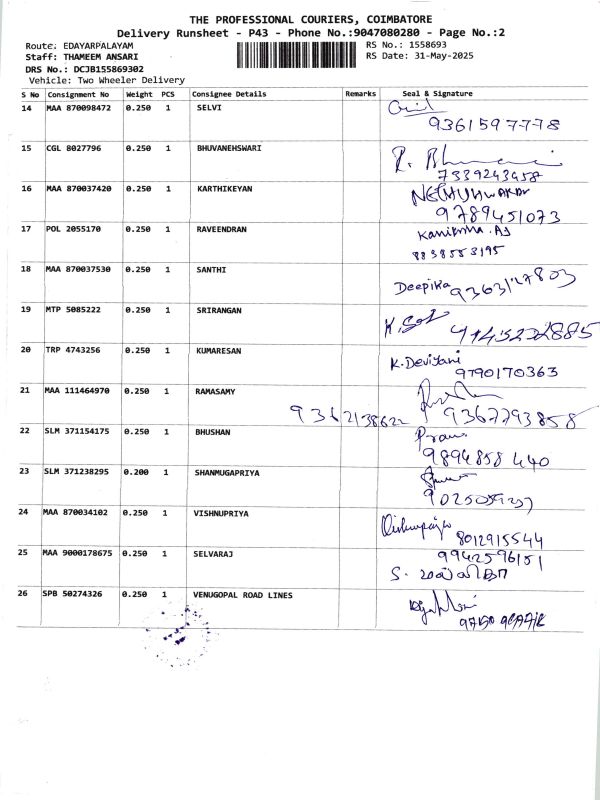 THE PROFESSIONAL COURIERS, COIMBATORE
Delivery Runsheet - P43 - Phone No.:9047080280 - Page No.:2
Route: EDAYARPALAYAM RS No.: 1558693
Staff: THAMEEM ANSARI RS Date: 31-May-2025
DRS No.: DCJB155869302
Vehicle: Two Wheeler Delivery
S No Consignment No Weight PCS Consignee Details Remarks Seal & Signature
14 MAA 870098472 0.250 1 SELVI
9361597778
15 CGL 8027796 0.250 1 BHUVANEHSWARI
7339243458
16 MAA 870037420 0.250 1 KARTHIKEYAN
9789451073
17 POL 2055170 0.250 1 RAVEENDRAN
8838553195
18 MAA 870037530 0.250 1 SANTHI
Deepika 9363127803
19 MTP 5085222 0.250 1 SRIRANGAN
20 TRP 4743256 0.250 1 KUMARESAN K.Devijani
9790170363
21 MAA 111464970 0.250 1 RAMASAMY
9362138622 9367793858
22 SLM 371154175 0.250 1 BHUSHAN
9894858440
23 SLM 371238295 0.200 1 SHANMUGAPRIYA
24 MAA 870034102 0.250 1 VISHNUPRIYA
8012915544
25 MAA 9000178675 0.250 1 SELVARAJ 9942596151
26 SPB 50274326 0.250 1 VENUGOPAL ROAD LINES